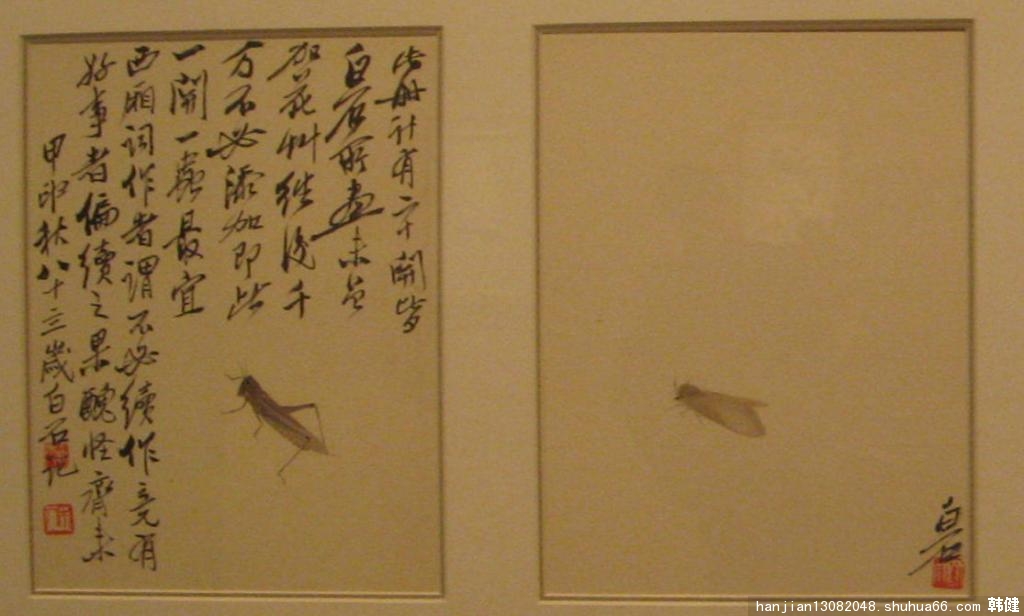 此册計有二十開皆
白石所畫未曾
加花艸後千
万不必添加即此
一開一蟲最宜
西廂詞作者謂不必續作竟有
好事者偏續之果醜怪齊来
甲申秋八十三歲白石記
白石
hanjian13082048.shuhua66.com 韩健